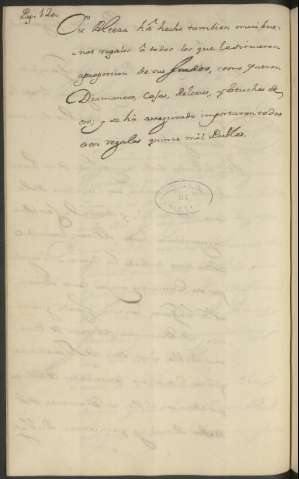 Su Alteza há hecho tambien mui bue-
nos regalos á todos los que la sirvieron
aproporcion de sus grados, como fueron
Diamantes, Cajas, Reloxes, y Estuches de
oro; y se há asegurado importaron todos
estos regalos quince mil Doblas.